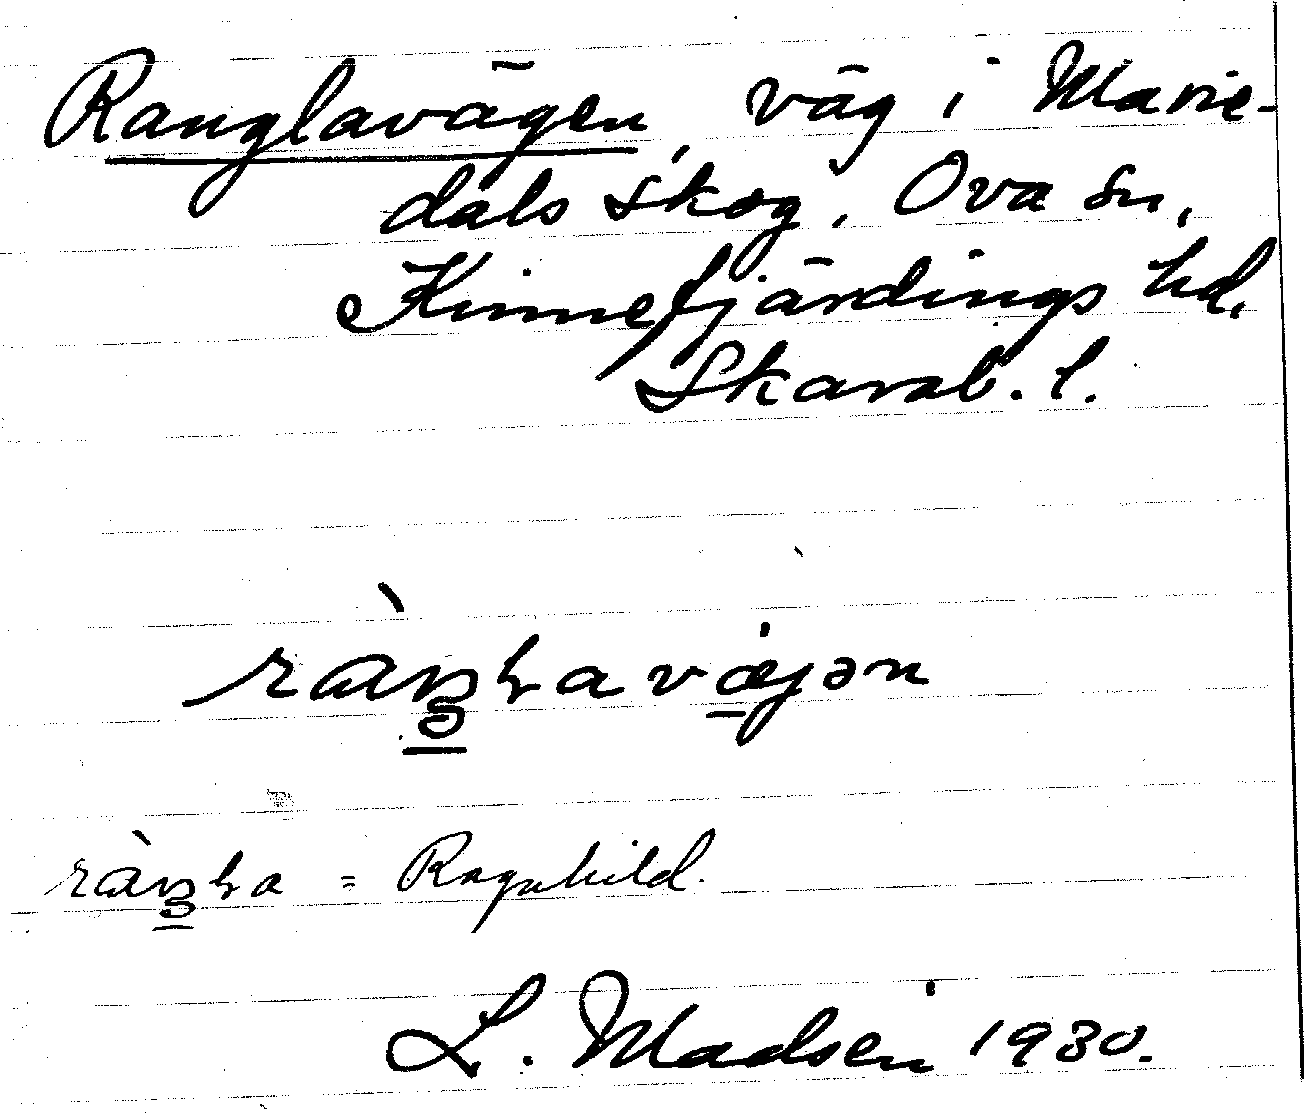 Ranglavägen, väg i Marie-
dals skog, Ova sn,
Kinnefjärdings hd.
Skarab. l.
= Ragnhild.
L. Madsen 1930.